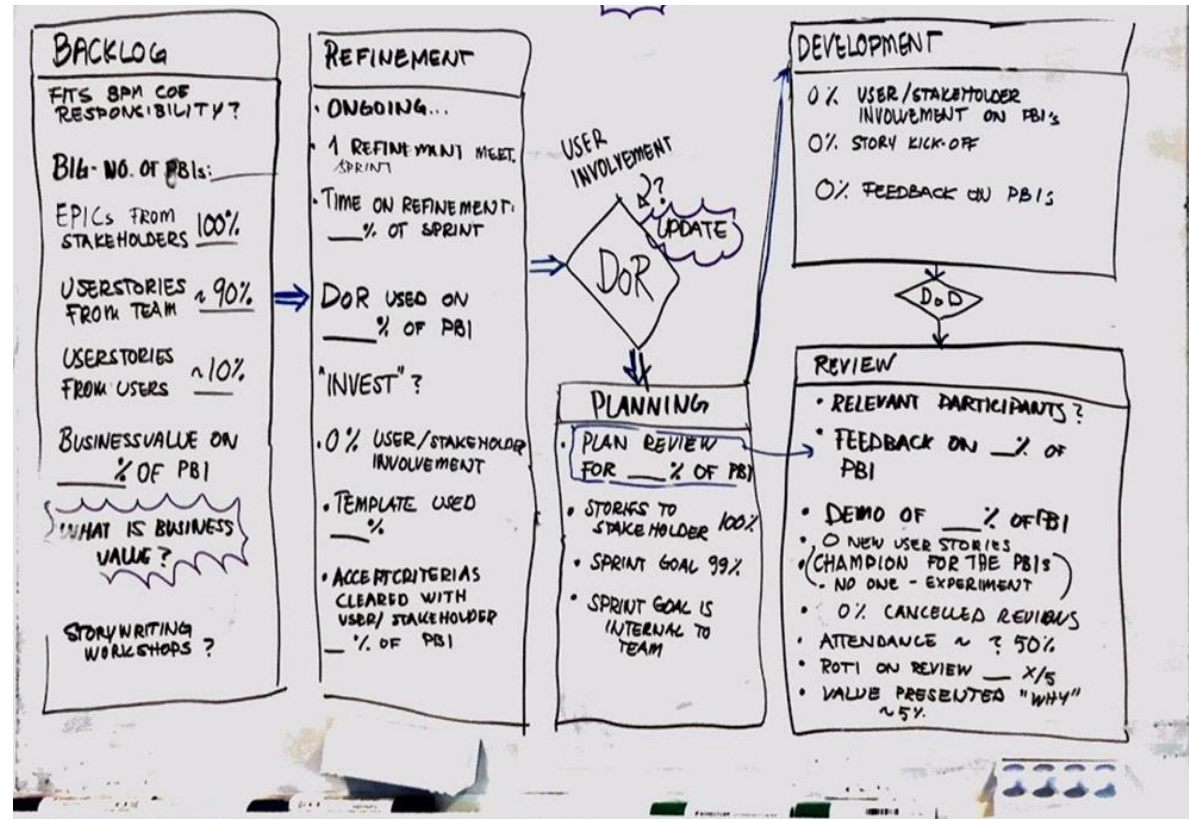 BACKLOG
FITS BPM COE
RESPONSIBILITY?
BIG-NO. OF PBIs: ____
EPICs FROM
STAKEHOLDERS 100%
USERSTORIES
FROM TEAM ~90%
USERSTORIES
FROM USERS ~10%
BUSINESSVALUE ON
____% OF PBI
WHAT IS BUSINESS
VALUE?
STORYWRITING
WORKSHOPS?
REFINEMENT
• ONGOING...
• 1 REFINEMANT MEET.
/SPRINT
• TIME ON REFINEMENT:
___% OF SPRINT
DoR USED ON
____% OF PBI
"INVEST"?
• 0% USER/STAKEHOLDER
INVOLVEMENT
• TEMPLATE USED
___%
• ACCEPTCRITERIAS
CLEARED WITH
USER/STAKEHOLDER
__% OF PBI
USER
INVOLVEMENT
?
UPDATE
DoR
PLANNING
• PLAN REVIEW
FOR ___% OF PBI
• STORIES TO
STAKEHOLDER 100%
• SPRINT GOAL 99%
• SPRINT GOAL IS
INTERNAL TO
TEAM
DEVELOPMENT
0% USER/STAKEHOLDER
INVOLVEMENT ON PBI's
0% STORY KICK-OFF
0% FEEDBACK ON PBI's
DoD
REVIEW
• RELEVANT PARTICIPANTS?
• FEEDBACK ON __% OF
PBI
• DEMO OF ___% OF PBI
• 0 NEW USER STORIES
• (CHAMPION FOR THE PBIs
- NO ONE - EXPERIMENT)
• 0% CANCELLED REVIEWS
• ATTENDANCE ~ ? 50%
• ROTI ON REVIEW __ X/5
• VALUE PRESENTED "WHY"
~5%